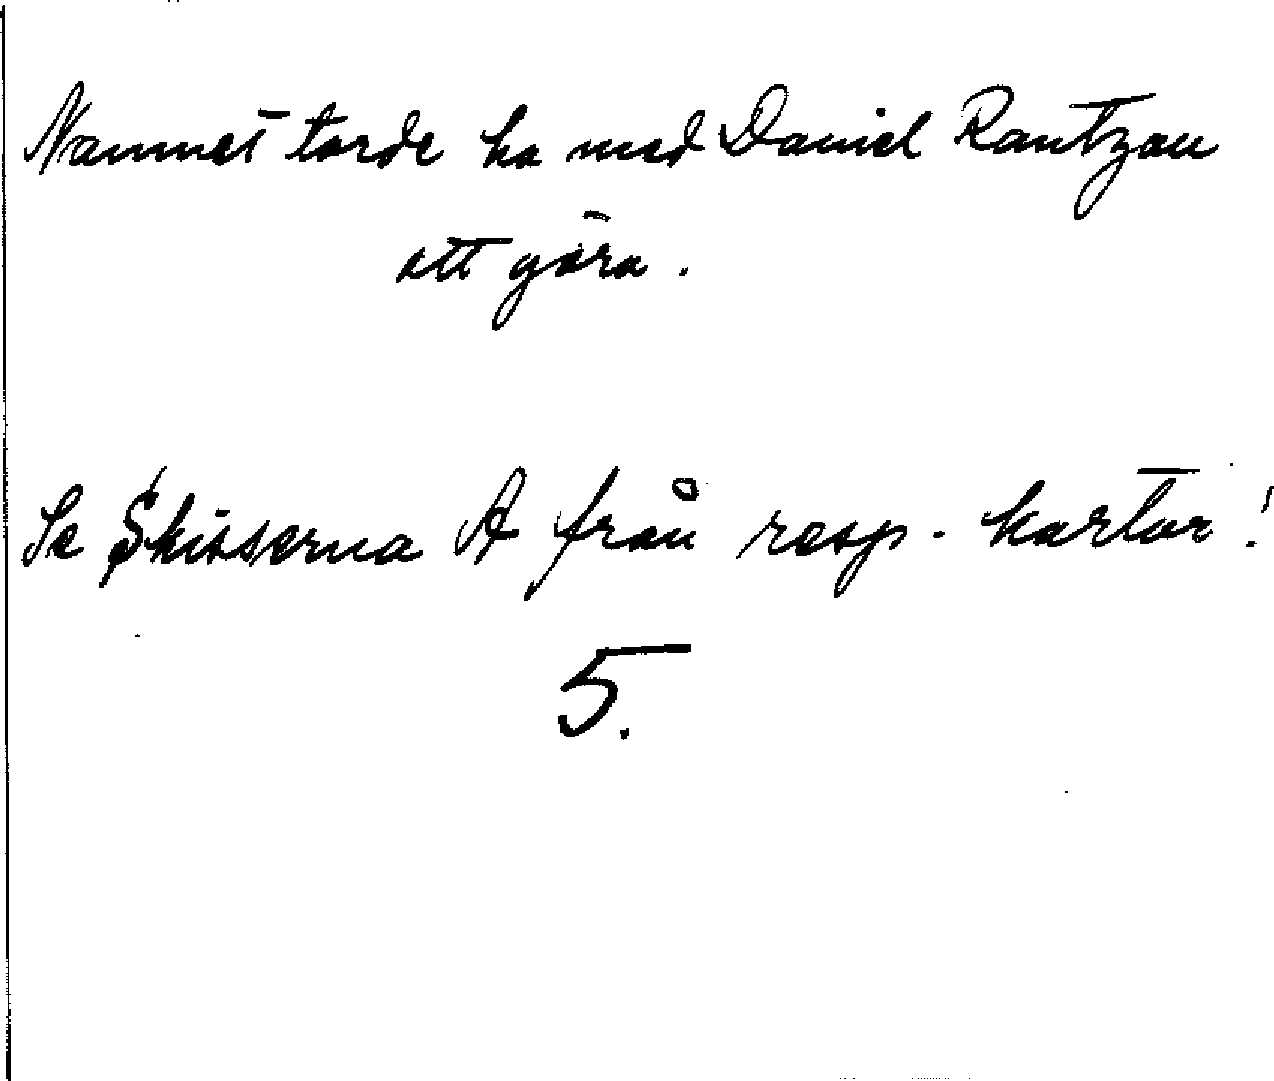 Namnet torde ha med Daniel Rantzau
att göra.
Se Skisserna A från resp. kartor!
5.